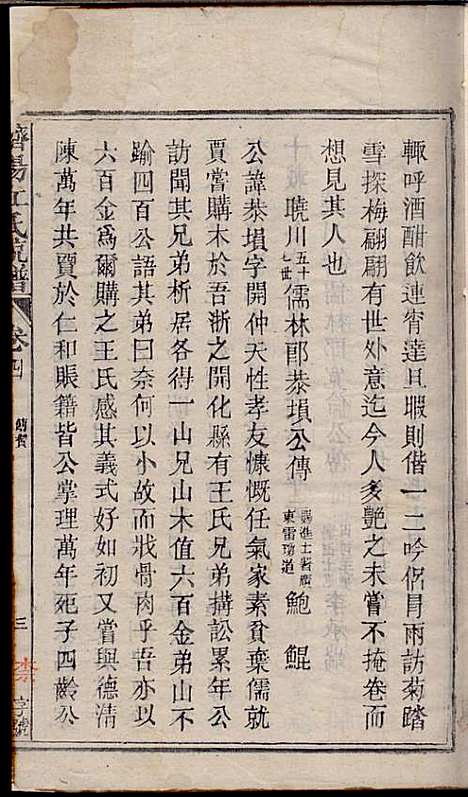 輒呼酒酣飲連宵達旦暇則偕一二吟侶冒雨訪菊踏
雪探梅翩翩有世外意迄今人多艷之未嘗不掩卷而
想見其人也
曉川五十七世儒林郎恭塤公傳 賜進士 東雷瓊道 鮑鯤
公諱恭塤字開仲天性孝友慷慨任氣家素貧棄儒就
賈嘗購木於吾浙之開化縣有王氏兄弟搆訟累年公
訪聞其兄弟析居各得一山兄山木值六百金弟山不
踰四百公語其弟曰奈何以小故而戕骨肉乎吾亦以
六百金爲爾購之王氏感其義式好如初又嘗與德清
陳萬年共賈於仁和賬籍皆公掌理萬年死子四齡公
濟陽江氏統譜
卷四
三
字號